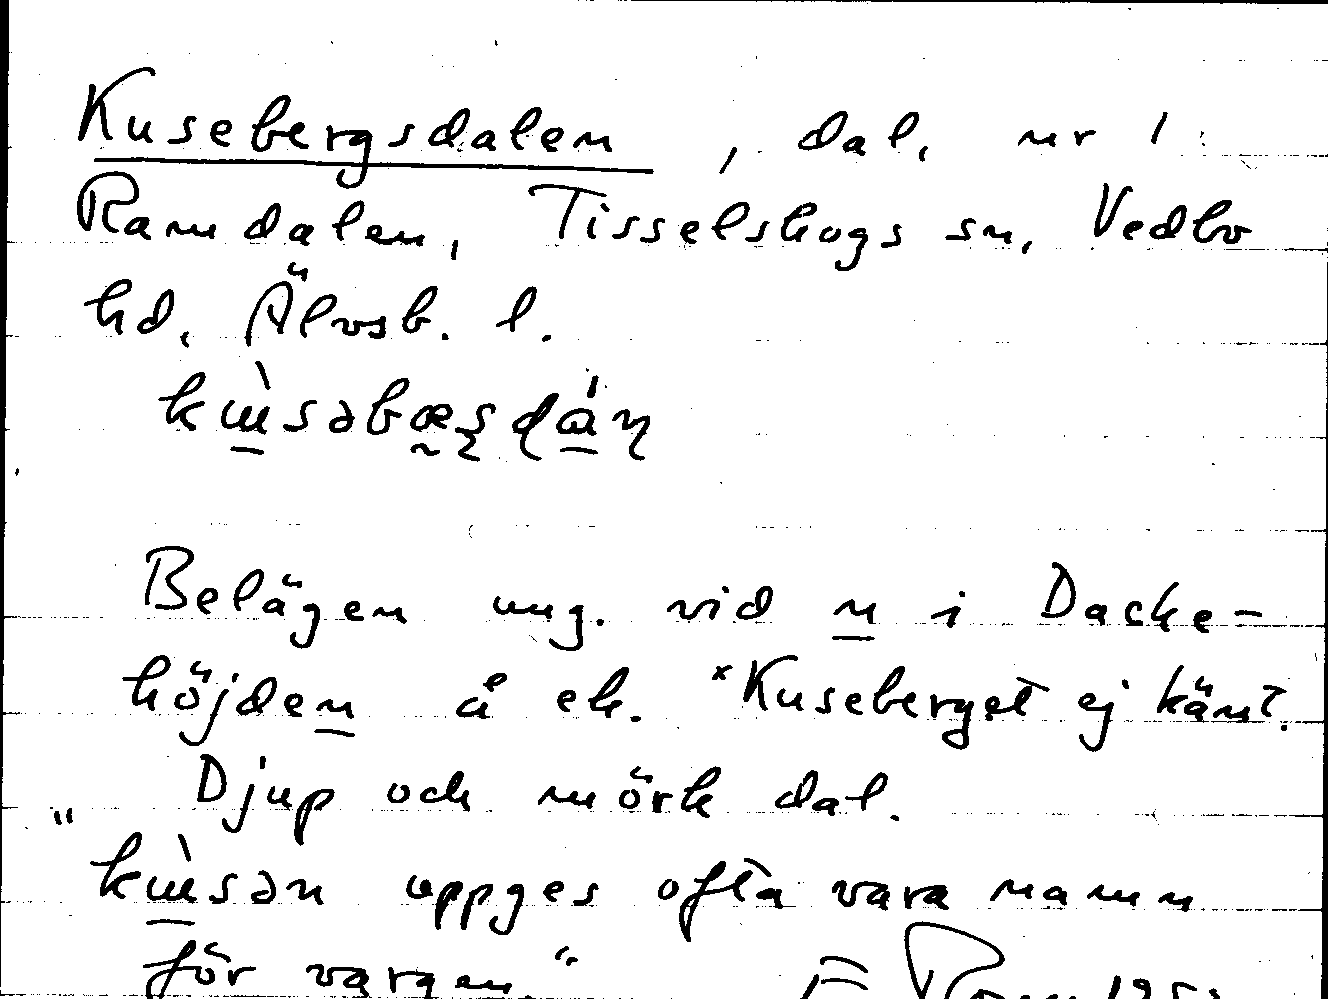 Kusebergsdalen, dal, nr 1
Ramdalen, Tisselskogs sn, Vedbo
hd, Älvsb. l.
kɯ̀səbæʂdáɳ
Belägen ung. vid n i Dacke-
höjden å ek. ˣKuseberget ej känt.
Djup och mörk dal.
"kɯ̀sən uppges ofta vara namn
för vargen"